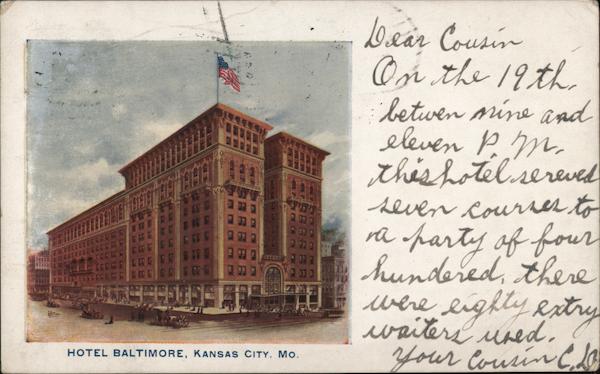 Dear Cousin
On the 19th.
betwen nine and
eleven P. M.
this hotel sereved
seven courses to
a party of four
hundered. there
were eighty extry
waiters used.
Your Cousin C.
HOTEL BALTIMORE, KANSAS CITY, MO.